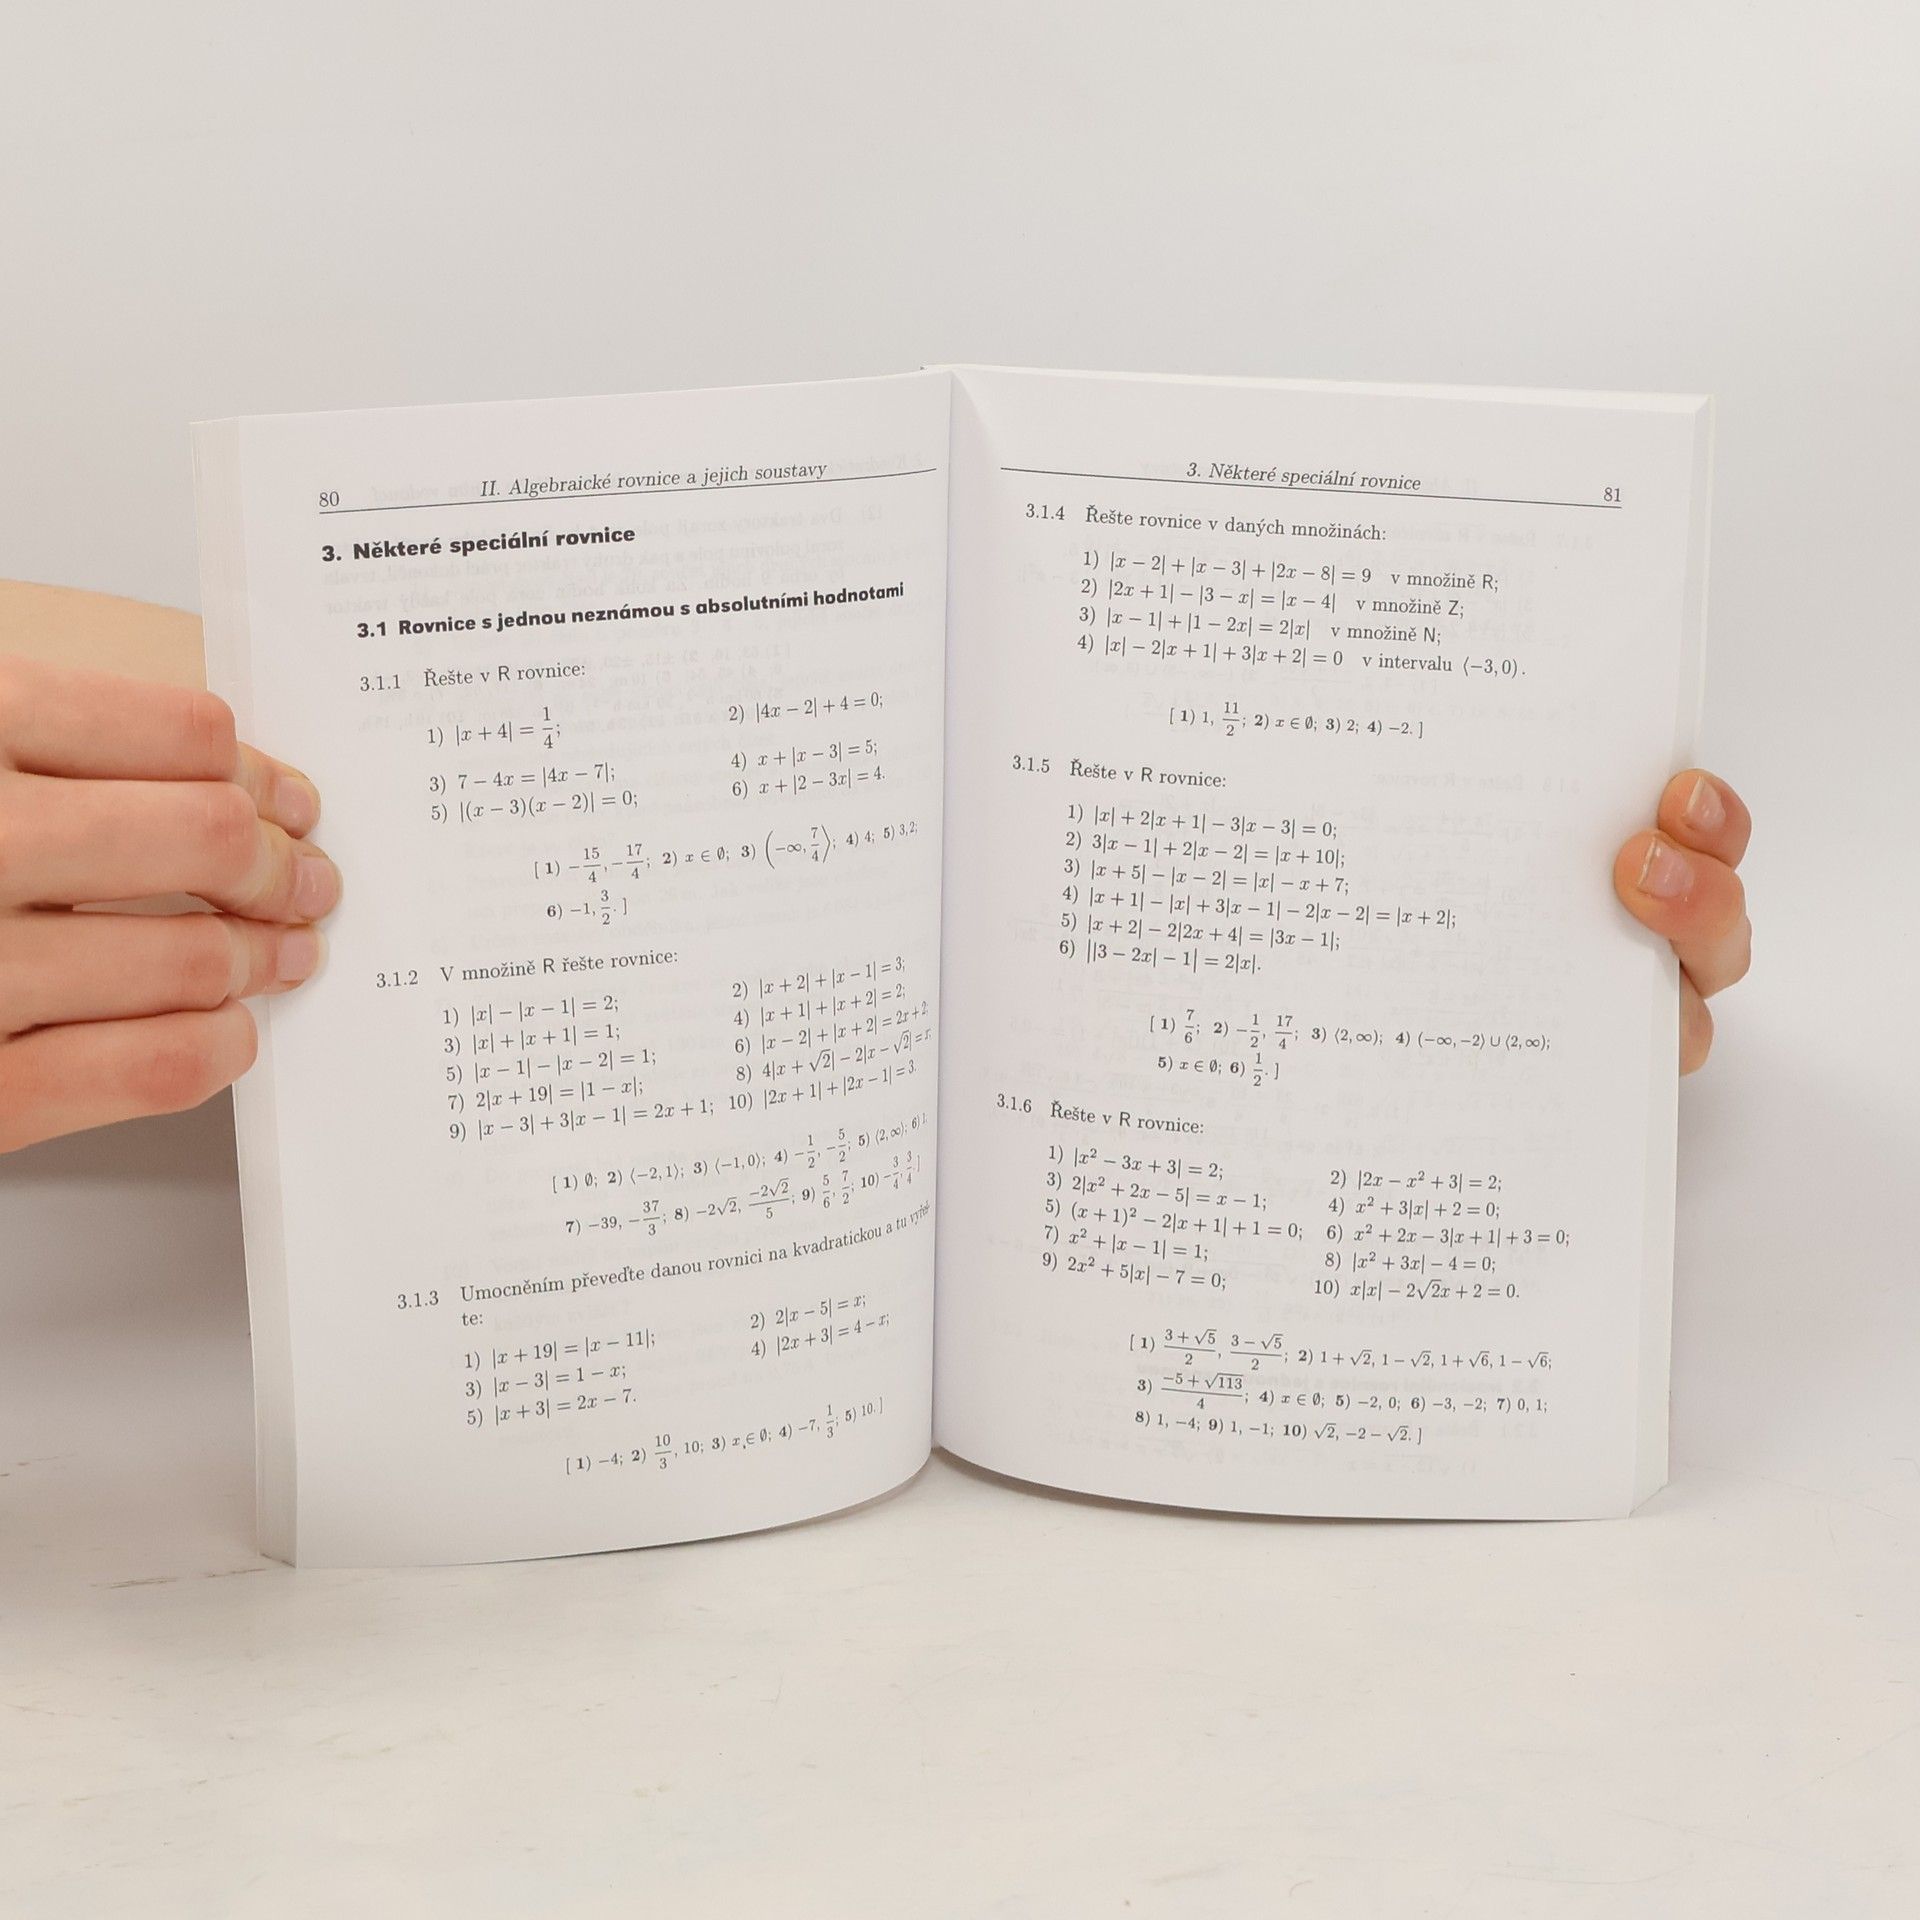 80 II. Algebraické rovnice a jejich soustavy
3. Některé speciální rovnice
3.1 Rovnice s jednou neznámou s absolutními hodnotami
3.1.1 Řešte v R rovnice:
1) |x + 4| = 1/4; 2) |4x − 2| + 4 = 0;
3) 7 − 4x = |4x − 7|; 4) x + |x − 3| = 5;
5) |(x − 3)(x − 2)| = 0; 6) x + |2 − 3x| = 4.
[ 1) −15/4, −17/4; 2) x ∈ ∅; 3) (−∞, 7/4⟩; 4) 4; 5) 3, 2;
6) −1, 3/2. ]
3.1.2 V množině R řešte rovnice:
1) |x| − |x − 1| = 2; 2) |x + 2| + |x − 1| = 3;
3) |x| + |x + 1| = 1; 4) |x + 1| + |x + 2| = 2;
5) |x − 1| − |x − 2| = 1; 6) |x − 2| + |x + 2| = 2x + 2;
7) 2|x + 19| = |1 − x|; 8) 4|x + √2| − 2|x − √2| = x;
9) |x − 3| + 3|x − 1| = 2x + 1; 10) |2x + 1| + |2x − 1| = 3.
[ 1) ∅; 2) ⟨−2, 1⟩; 3) ⟨−1, 0⟩; 4) −1/2, −5/2; 5) ⟨2, ∞); 6) 1;
7) −39, −37/3; 8) −2√2, −2√2/5; 9) 5/6, 7/2; 10) −3/4, 3/4. ]
3.1.3 Umocněním převeďte danou rovnici na kvadratickou a tu vyřeš-
te:
1) |x + 19| = |x − 11|; 2) 2|x − 5| = x;
3) |x − 3| = 1 − x; 4) |2x + 3| = 4 − x;
5) |x + 3| = 2x − 7.
[ 1) −4; 2) 10/3, 10; 3) x ∈ ∅; 4) −7, 1/3; 5) 10. ]
3. Některé speciální rovnice 81
3.1.4 Řešte rovnice v daných množinách:
1) |x − 2| + |x − 3| + |2x − 8| = 9 v množině R;
2) |2x + 1| − |3 − x| = |x − 4| v množině Z;
3) |x − 1| + |1 − 2x| = 2|x| v množině N;
4) |x| − 2|x + 1| + 3|x + 2| = 0 v intervalu ⟨−3, 0).
[ 1) 1, 11/2; 2) x ∈ ∅; 3) 2; 4) −2. ]
3.1.5 Řešte v R rovnice:
1) |x| + 2|x + 1| − 3|x − 3| = 0;
2) 3|x − 1| + 2|x − 2| = |x + 10|;
3) |x + 5| − |x − 2| = |x| − x + 7;
4) |x + 1| − |x| + 3|x − 1| − 2|x − 2| = |x + 2|;
5) |x + 2| − 2|2x + 4| = |3x − 1|;
6) ||3 − 2x| − 1| = 2|x|.
[ 1) 7/6; 2) −1/2, 17/4; 3) ⟨2, ∞); 4) (−∞, −2⟩ ∪ ⟨2, ∞);
5) x ∈ ∅; 6) 1/2. ]
3.1.6 Řešte v R rovnice:
1) |x² − 3x + 3| = 2; 2) |2x − x² + 3| = 2;
3) 2|x² + 2x − 5| = x − 1; 4) x² + 3|x| + 2 = 0;
5) (x + 1)² − 2|x + 1| + 1 = 0; 6) x² + 2x − 3|x + 1| + 3 = 0;
7) x² + |x − 1| = 1; 8) |x² + 3x| − 4 = 0;
9) 2x² + 5|x| − 7 = 0; 10) x|x| − 2√2x + 2 = 0.
[ 1) (3 + √5)/2, (3 − √5)/2; 2) 1 + √2, 1 − √2, 1 + √6, 1 − √6;
3) (−5 + √113)/4; 4) x ∈ ∅; 5) −2, 0; 6) −3, −2; 7) 0, 1;
8) 1, −4; 9) 1, −1; 10) √2, −2 − √2. ]